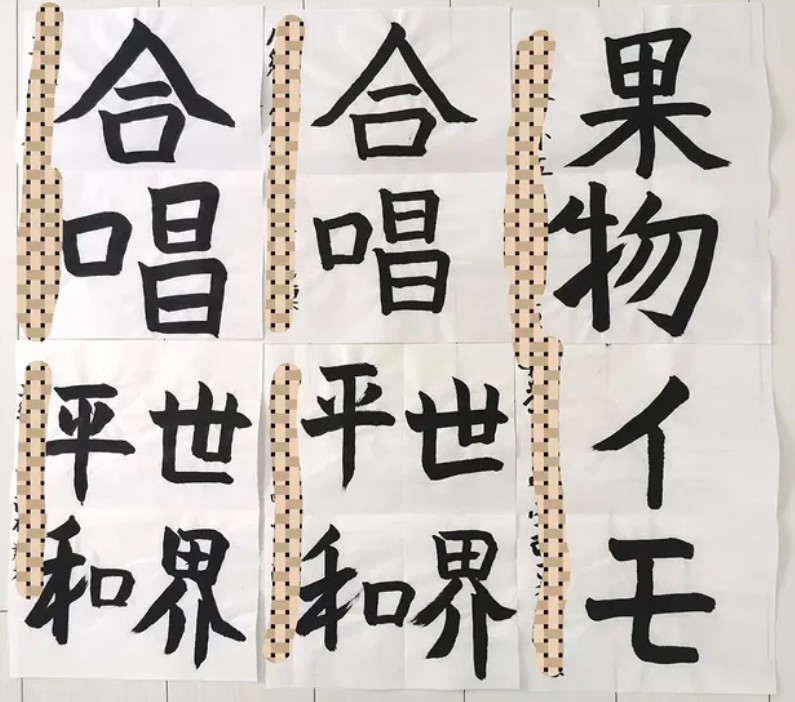 果物
合唱
合唱
イモ
世界
平和
世界
平和